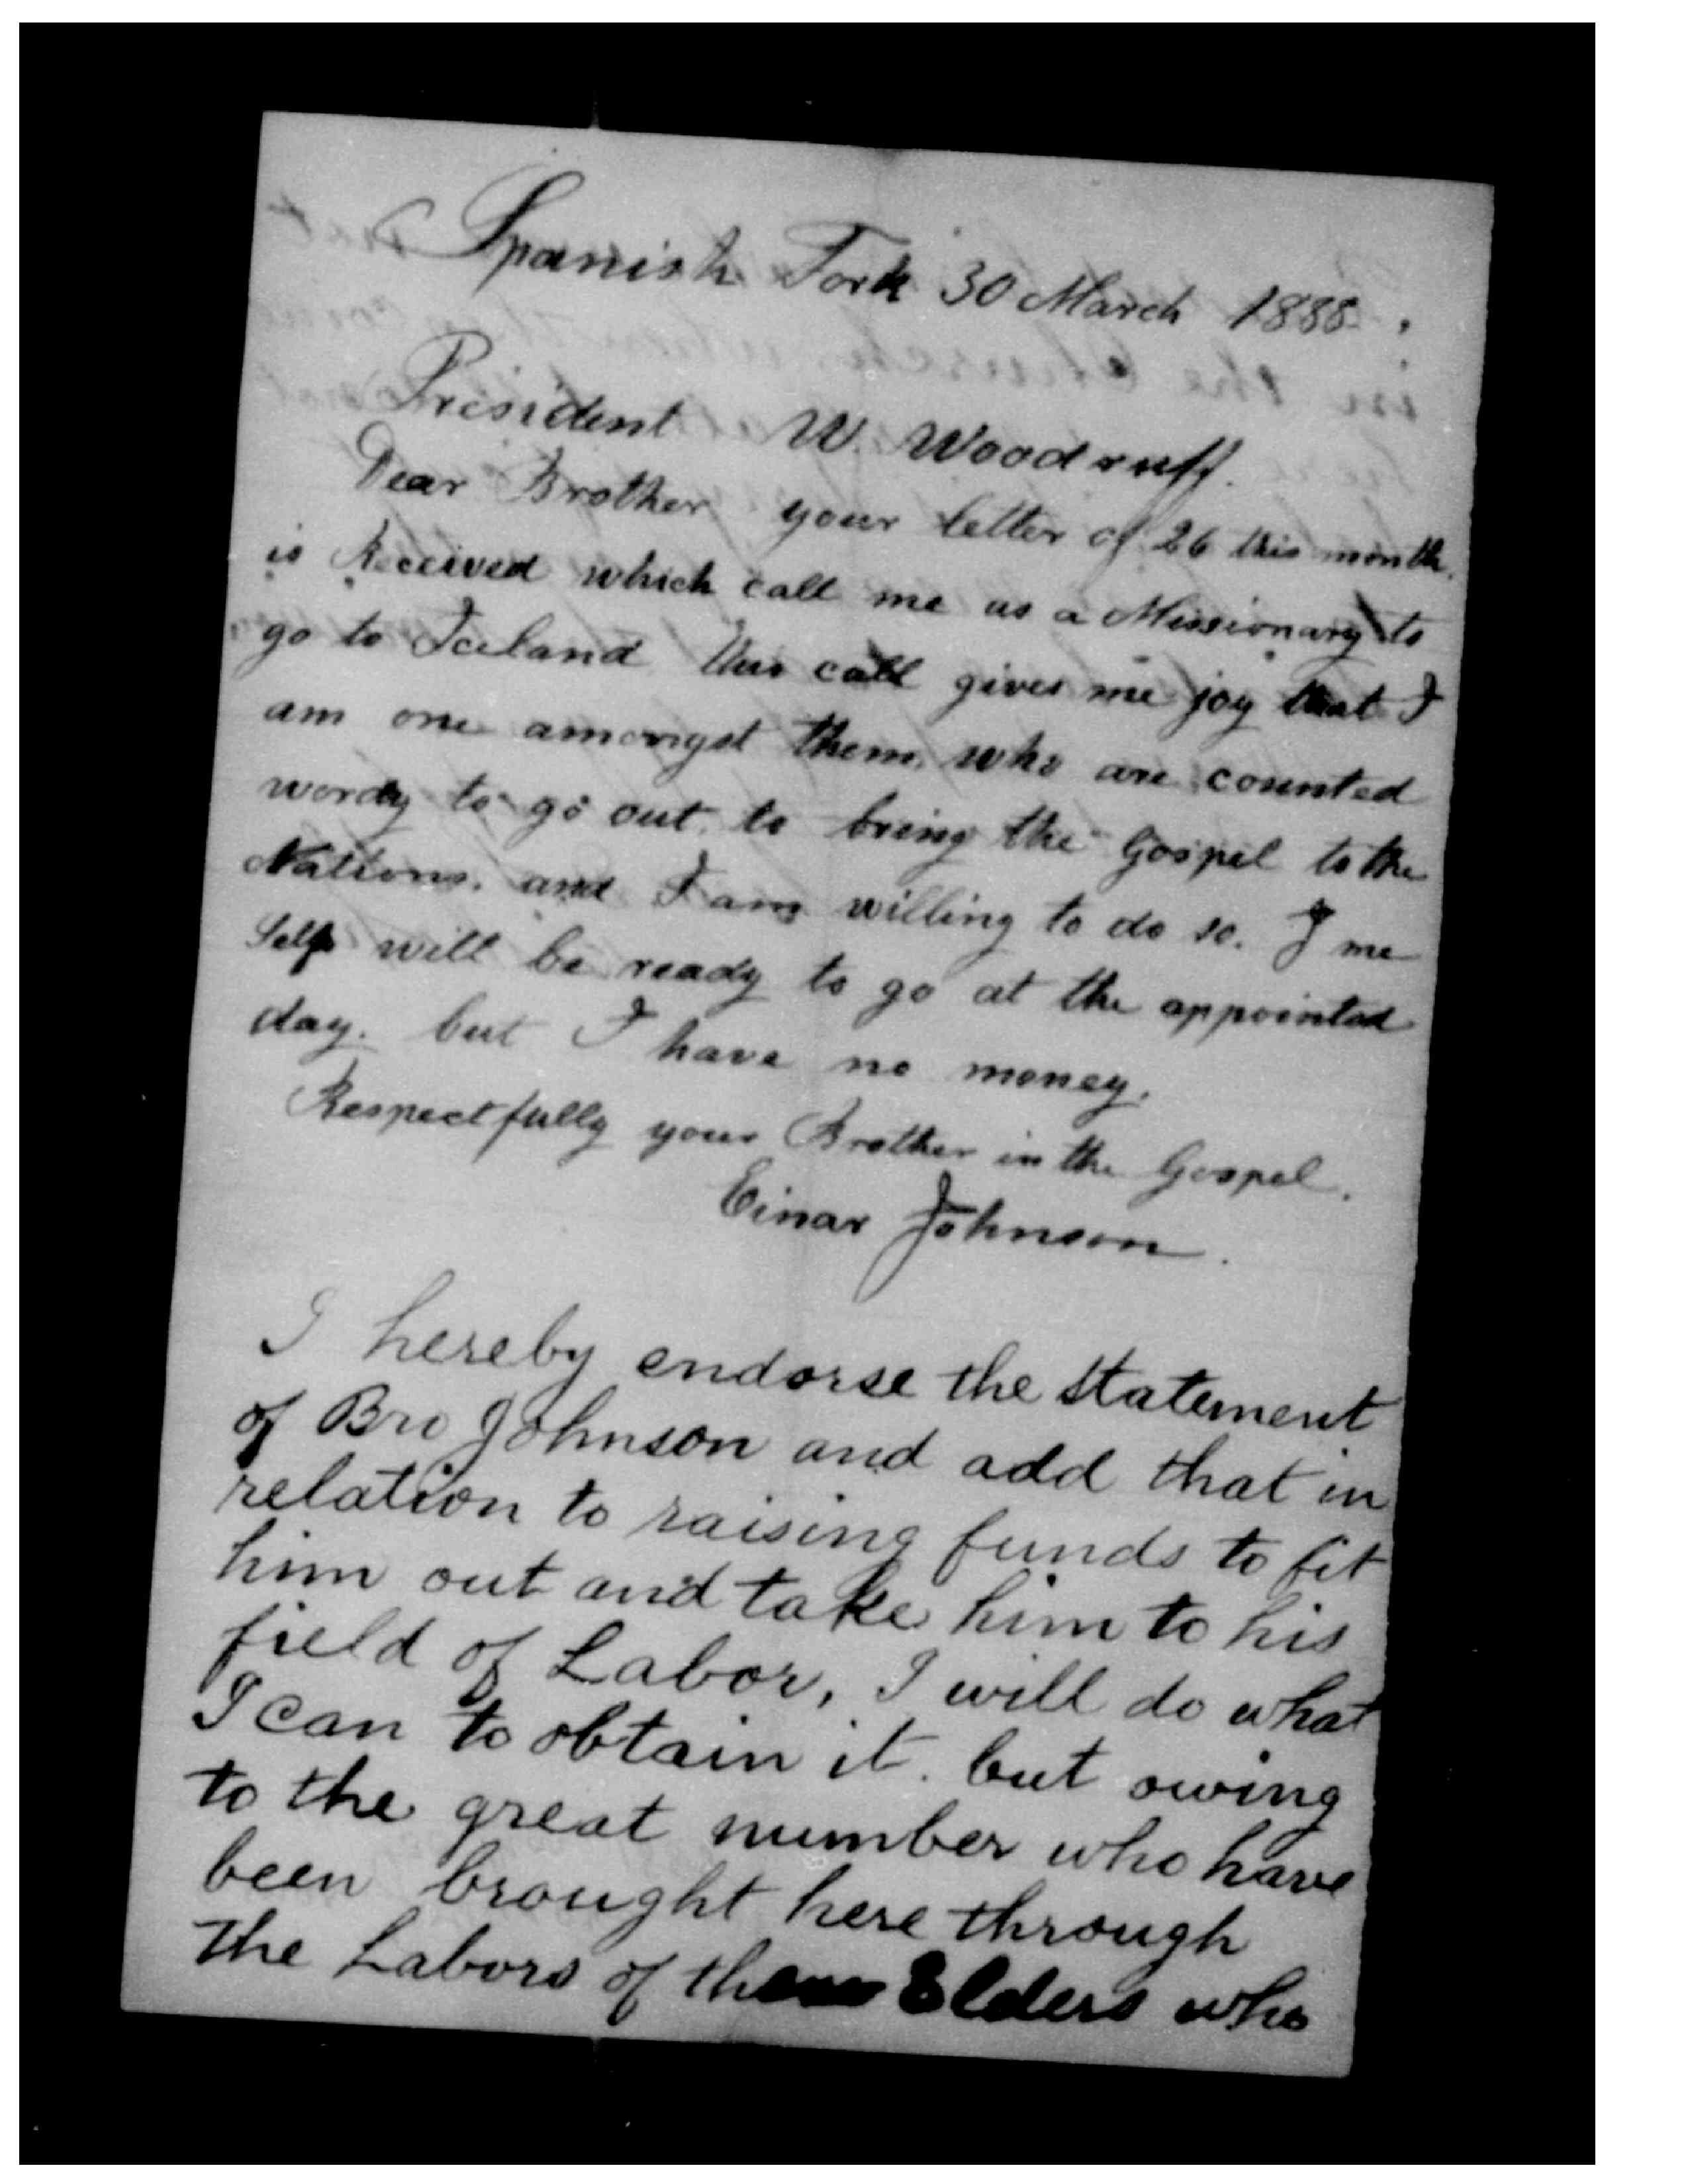 Spanish Fork 30 March 1888.
President W. Woodruff.
Dear Brother your letter of 26 this month.
is Received which call me as a Missionary to
go to Iceland this call gives me joy that I
am one amongst them, who are counted
wordy to go out to bring the Gospel to the
Nations. and I am willing to do so. I me
Self will be ready to go at the appointed
day. but I have no money.
Respectfully your Brother in the Gospel.
Einar Johnson.
I hereby endorse the statement
of Bro Johnson and add that in
relation to raising funds to fit
him out and take him to his
field of Labor, I will do what
I can to obtain it. but owing
to the great number who have
been brought here through
the Labors of Elders who